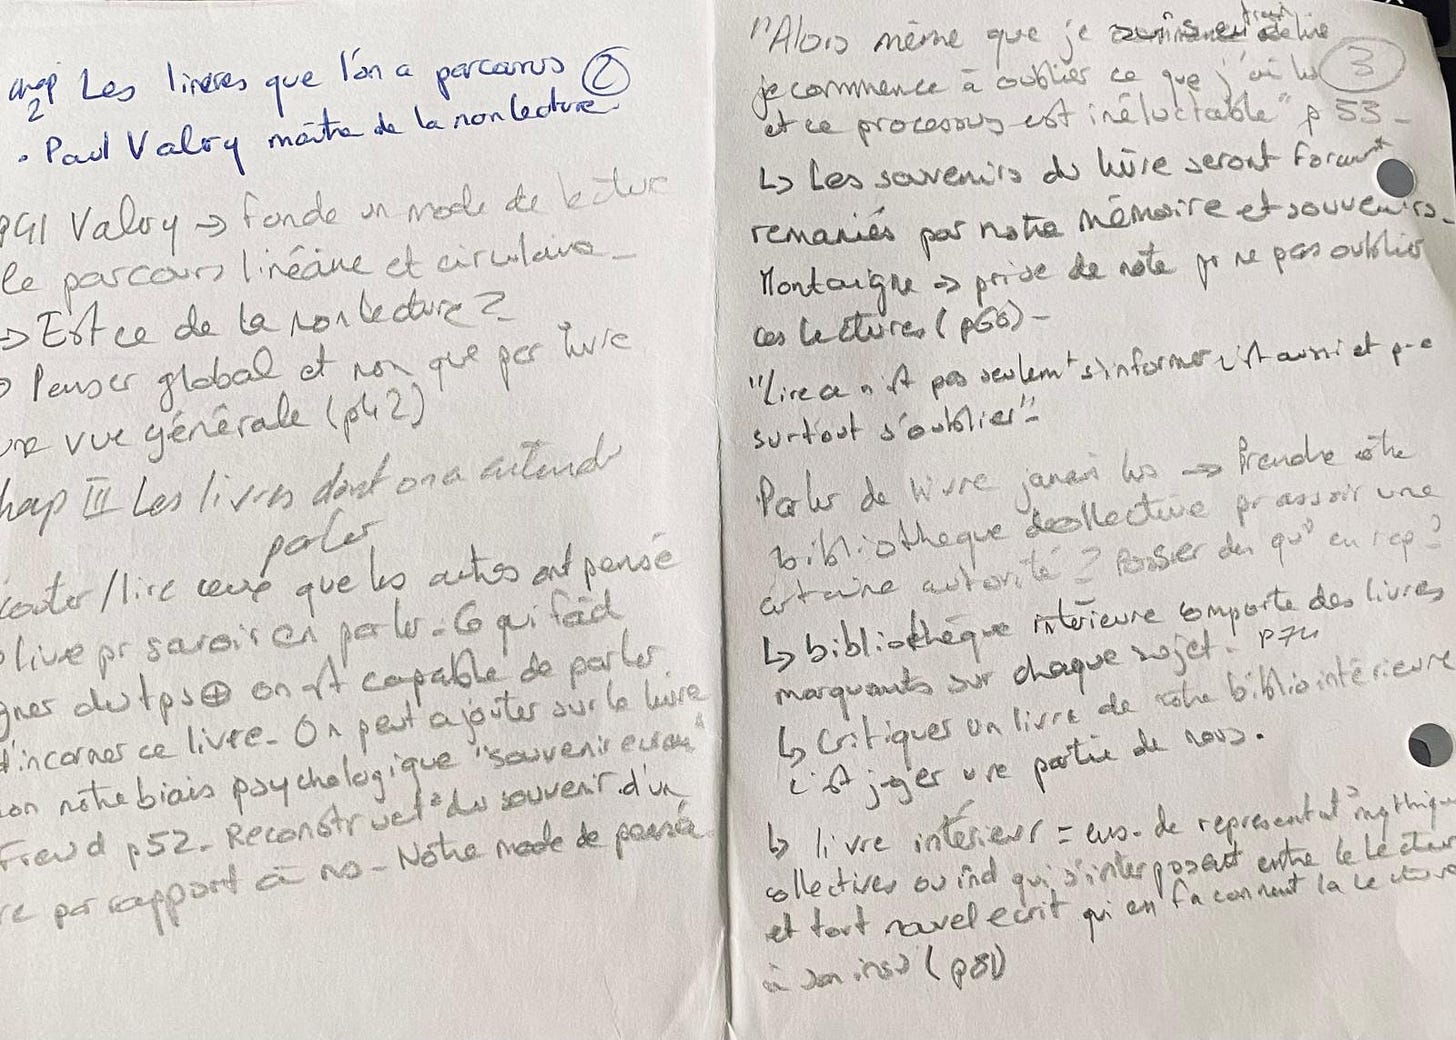 chap Les livres que l'on a parcourus ②
2
. Paul Valry maître de la non lecture.
941 Valry → fonde un mode de lecture
le parcours linéaire et circulaire_
→ Est ce de la non lecture ?
Penser global et non que par livre
une vue générale (p42)
hap III Les livres dont on a entendu
parler
couter / lire ceux que les autres ont pensé
livre pr savoir en parler. Ce qui fait
gner du tps ⊕ on est capable de parler
d'incarner ce livre. On peut ajouter sur le livre
on notre biais psychologique "souvenir ecran"
Freud p52. Reconstruct° du souvenir d'un
re par rapport à ns - Notre mode de pensé
"Alors même que je de lire ③
je commence à oublier ce que j'ai lu
et ce processus est inéluctable" p 53 -
↳ Les souvenirs du livre seront
remaniés par notre mémoire et souvenirs.
Montaigne → prise de note pr ne pas oublier
ces lectures (p60) -
"Lire ce n'est pas seulemt s'informer c'est aussi et p-e
surtout s'oublier"-
Parler de livre jamais lus → Prendre notre
bibliotheque collective pr assoir une
certaine autorité ?
↳ bibliothèque intérieure comporte des livres
marquants sur chaque sujet. p74
↳ Critiquer un livre de notre biblio intérieure
c'est juger une partie de nous.
↳ livre intérieur = ens. de représentat° mythiques
collectives ou ind qui s'interposent entre le lecteur
et tout nouvel ecrit qui en façonnent la lecture
à son insu (p81)